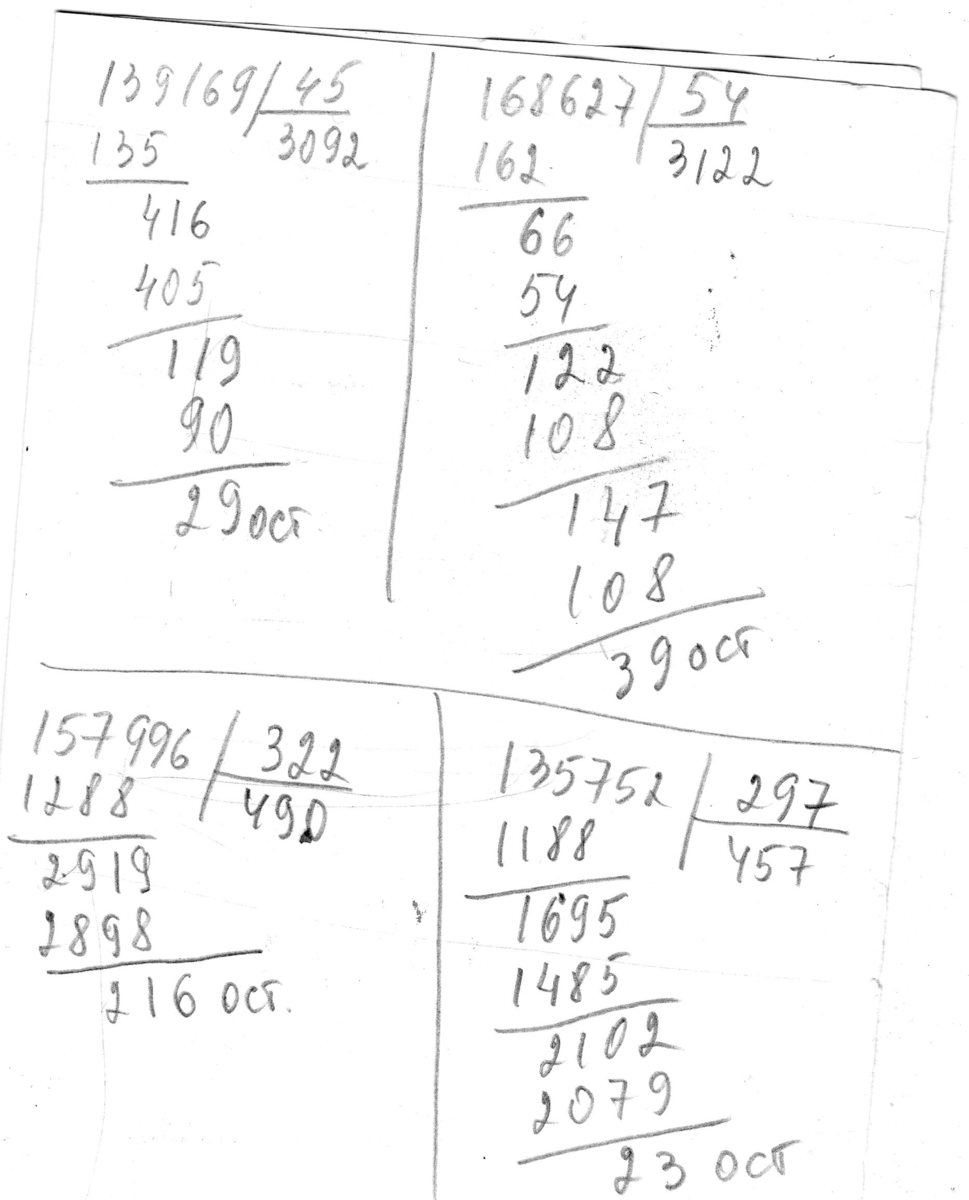 139169 45
135 3092
416
405
119
90
29 ост.
168627 54
162 3122
66
54
122
108
147
108
39 ост
157996 322
1288 490
2919
2898
216 ост.
135752 297
1188 457
1695
1485
2102
2079
23 ост